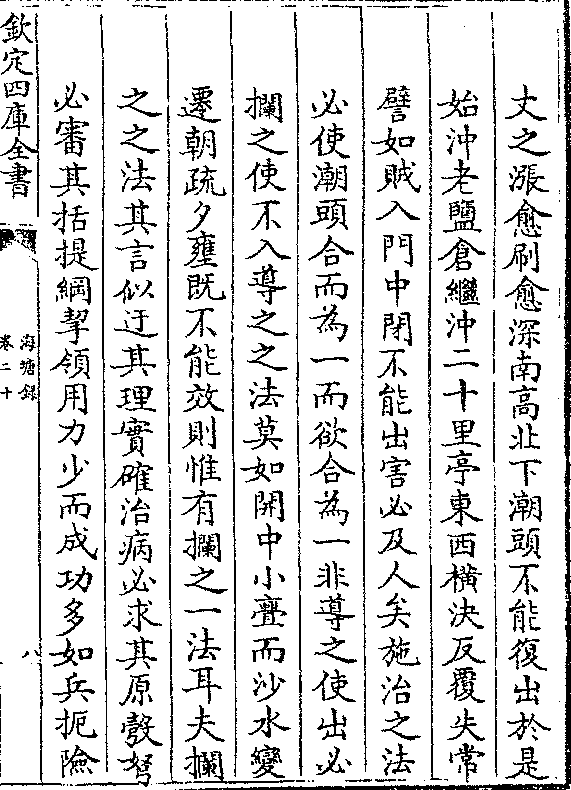 丈之漲愈刷愈深南高北下潮頭不能復出於是
始沖老鹽倉繼沖二十里亭東西橫決反覆失常
譬如賊入門中閉不能出害必及人矣施治之法
必使潮頭合而為一而欲合為一非導之使出必
攔之使不入導之之法莫如開中小亹而沙水變
遷朝疏夕壅既不能效則惟有攔之一法耳夫攔
之之法其言似迂其理實確治病必求其原彀弩
必審其括提綱挈領用力少而成功多如兵扼險
欽定四庫全書
海塘録
卷二十
八